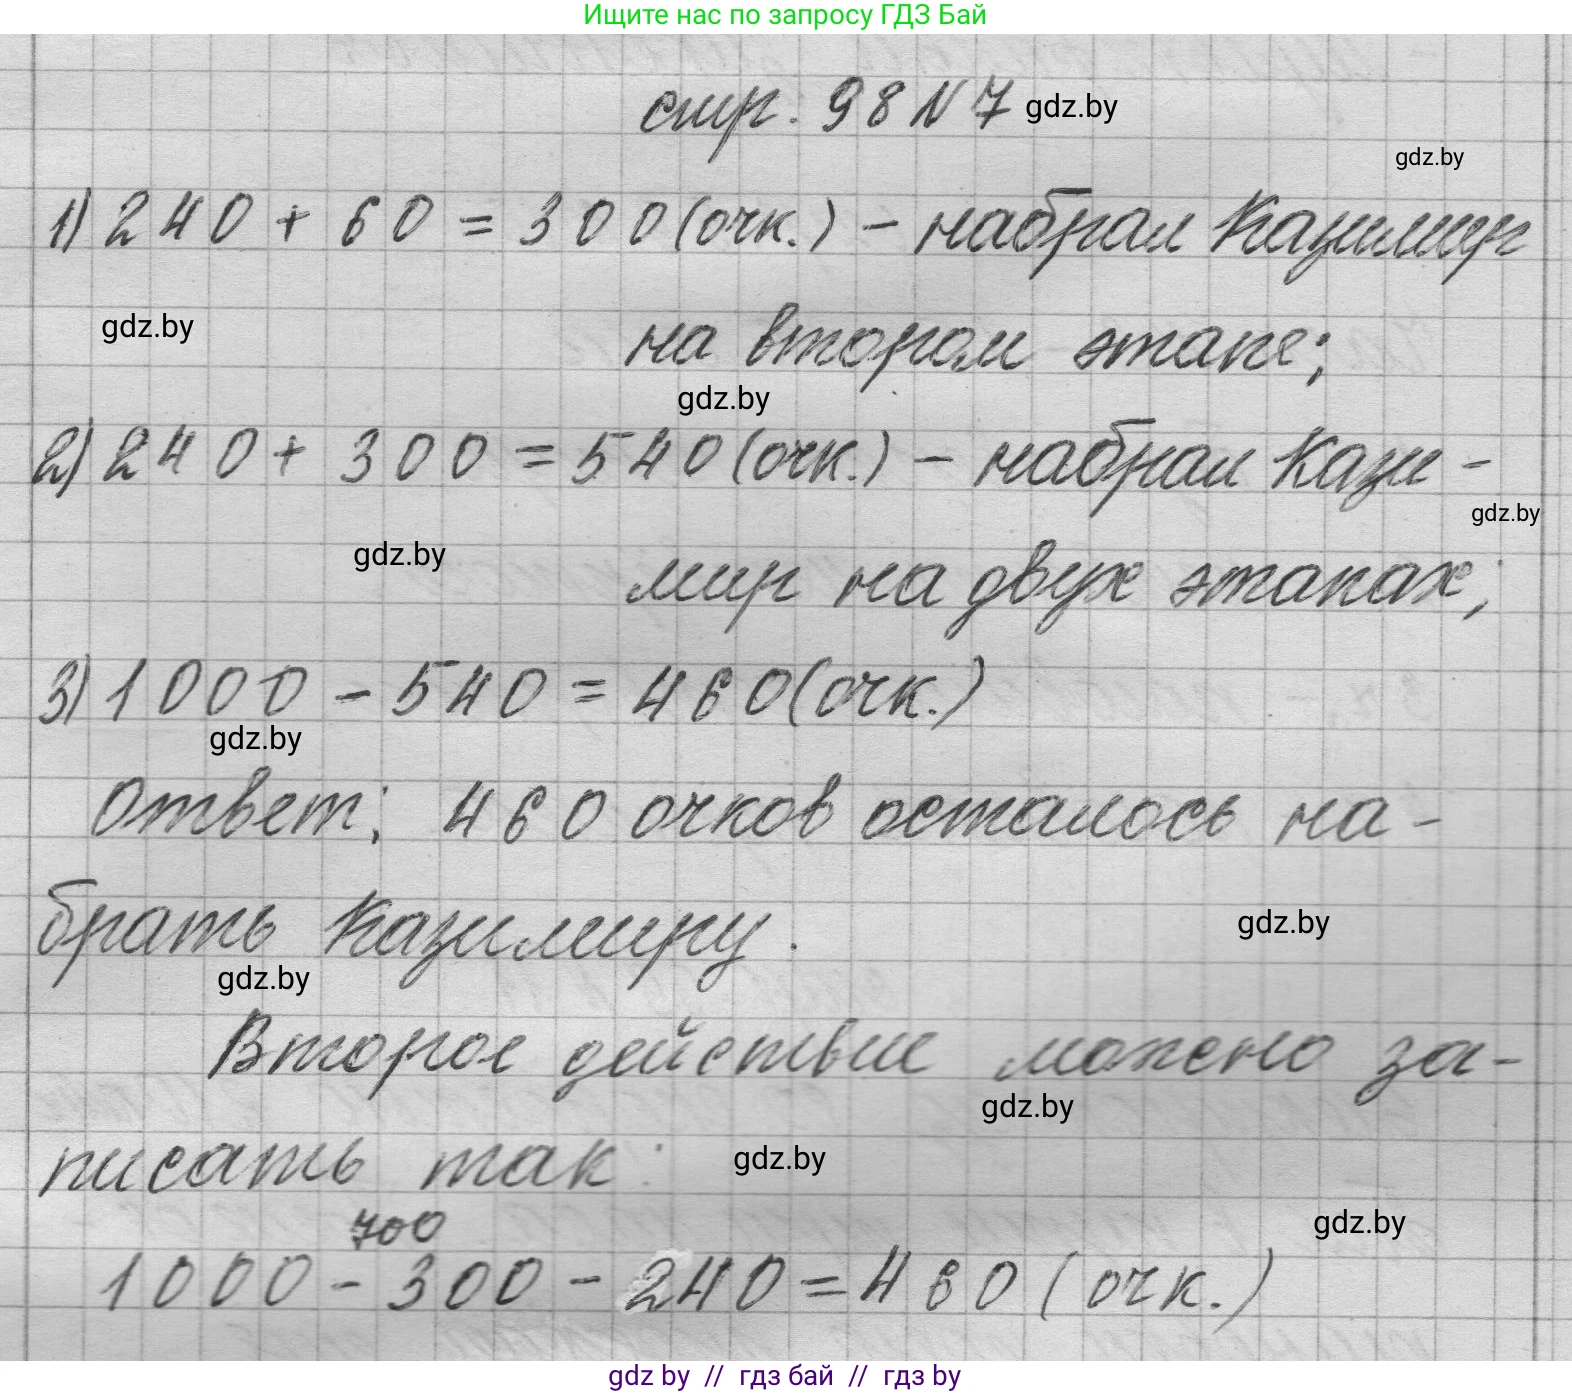 Ищите нас по запросу ГДЗ Бай
стр. 98 N 7 gdz.by
gdz.by
1) 240 + 60 = 300 (очк.) – набрал Казимир
gdz.by
на втором этапе;
gdz.by
2) 240 + 300 = 540 (очк.) – набрал Кази-
gdz.by
gdz.by
мир на двух этапах;
3) 1000 – 540 = 460 (очк.)
gdz.by
Ответ: 460 очков осталось на-
брать Казимиру.
gdz.by
gdz.by
Второе действие можно за-
gdz.by
писать так:
gdz.by
700
gdz.by
1000 – 300 – 240 = 460 (очк.)
gdz by // гдз бай // гдз by